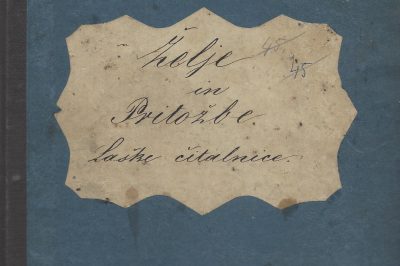 Želje 48.
48
in
Pritožbe
laške čitalnice.